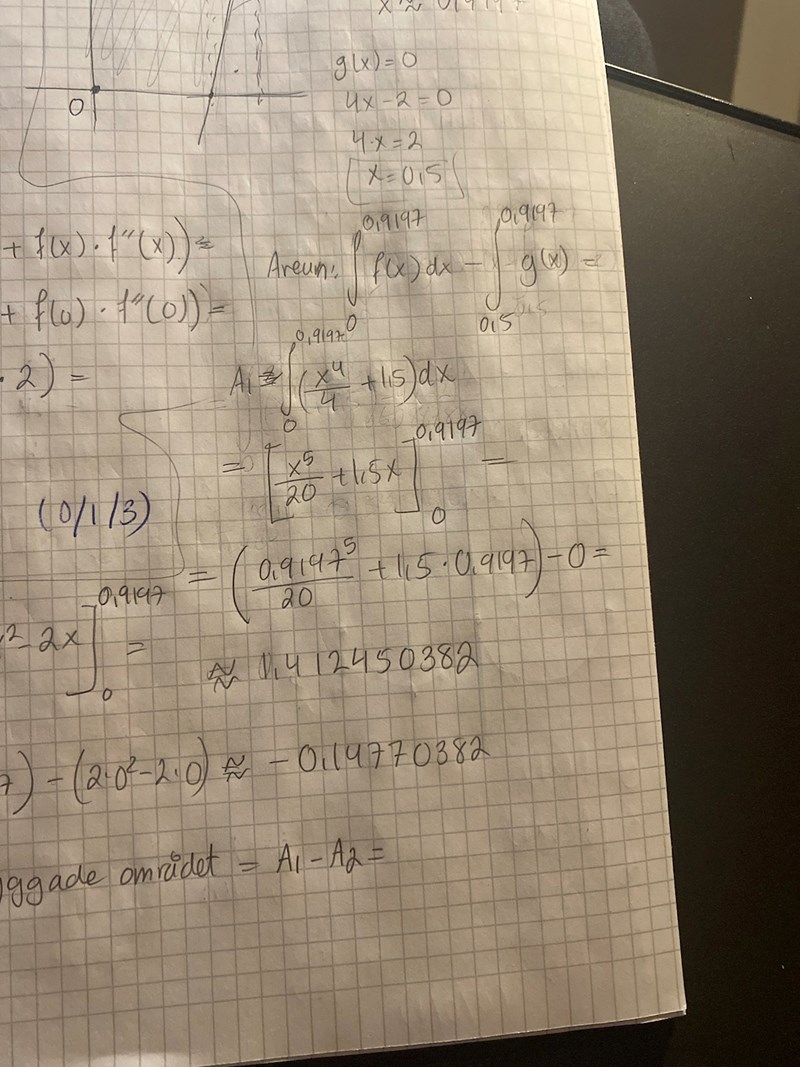 x ≈ 0,9197
g(x)=0
4x-2=0
4·x=2
x=0,5
0
+ f(x)·f''(x))=
+ f(0)·f''(0))=
·2)=
(0/1/3)
Arean: ∫₀^0,9197 f(x)dx - ∫0,5^0,9197 g(x) =
A₁ = ∫₀^0,9197 (x⁴/4 + 1,5)dx
= [x⁵/20 + 1,5x]₀^0,9197 =
= (0,9197⁵/20 + 1,5·0,9197) - 0 =
≈ 1,412450382
²-2x]₀^0,9197 =
7) - (2·0²-2·0) ≈ -0,14770382
ggade området = A₁-A₂=